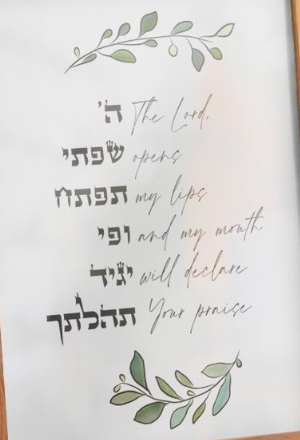 ה' The Lord,
שפתי opens
תפתח my lips
ופי and my mouth
יגיד will declare
תהלתך Your praise